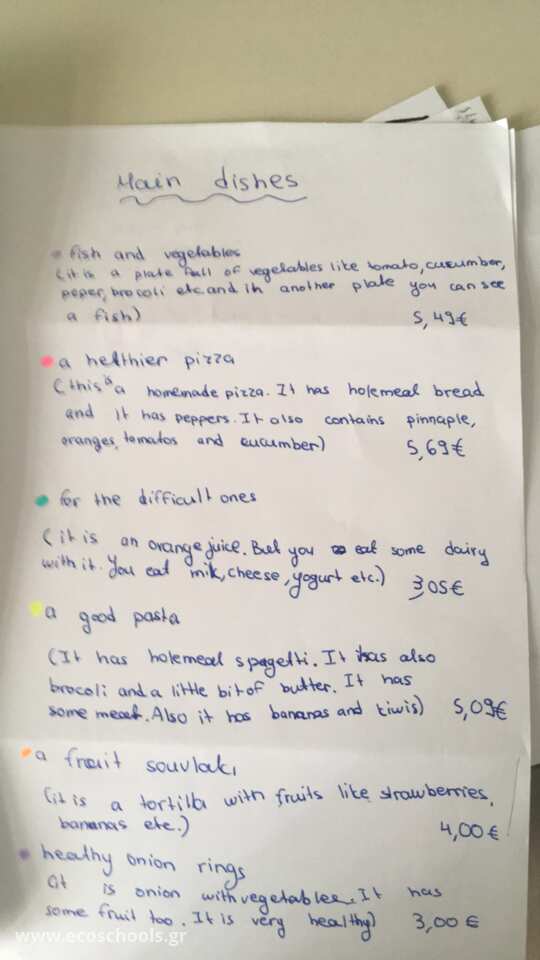 Main dishes
fish and vegetables
(it is a plate full of vegetables like tomato, cucumber,
peper, brocoli etc. and in another plate you can see
a fish) 5,49€
a helthier pizza
(this is a homemade pizza. It has holemeal bread
and it has peppers. It also contains pinnaple,
oranges, tomatos and cucumber) 5,69€
for the difficult ones
(it is an orange juice. But you eat some dairy
with it. You eat milk, cheese, yogurt etc.) 3,05€
a good pasta
(It has holemeal spagetti. It has also
brocoli and a little bit of butter. It has
some meat. Also it has bananas and kiwis) 5,09€
a fruit souvlaki
(it is a tortilla with fruits like strawberries,
bananas etc.) 4,00€
healthy onion rings
(it is onion with vegetables. It has
some fruit too. It is very healthy) 3,00€
www.ecoschools.gr